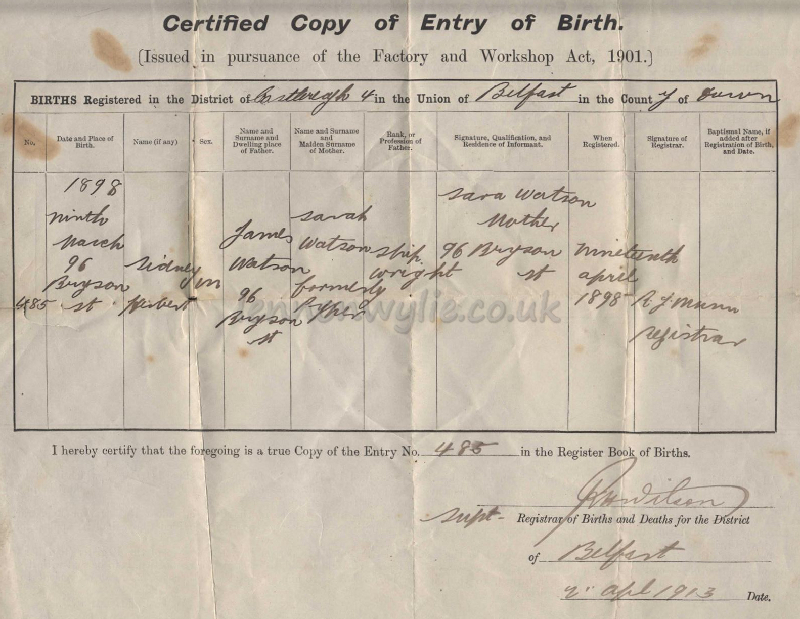 Certified Copy of Entry of Birth.
(Issued in pursuance of the Factory and Workshop Act, 1901.)
BIRTHS Registered in the District of Castlereagh 4 in the Union of Belfast in the County of Down
No.
Date and Place of Birth.
Name (if any)
Sex.
Name and Surname and Dwelling place of Father.
Name and Surname and Maiden Surname of Mother.
Rank, or Profession of Father.
Signature, Qualification, and Residence of Informant.
When Registered.
Signature of Registrar.
Baptismal Name, if added after Registration of Birth, and Date.
485
1898
ninth
March
96
Bryson
st
Sidney
Herbert
m
James
Watson
96
Bryson
st
Sarah
Watson
formerly
ship
wright
Sara Watson
Mother
96 Bryson
st
nineteenth
april
1898
R J Munn
registrar
wylie.co.uk
I hereby certify that the foregoing is a true Copy of the Entry No. 485 in the Register Book of Births.
Wilson
Supt- Registrar of Births and Deaths for the District
of Belfast
2" apl 1913 Date.